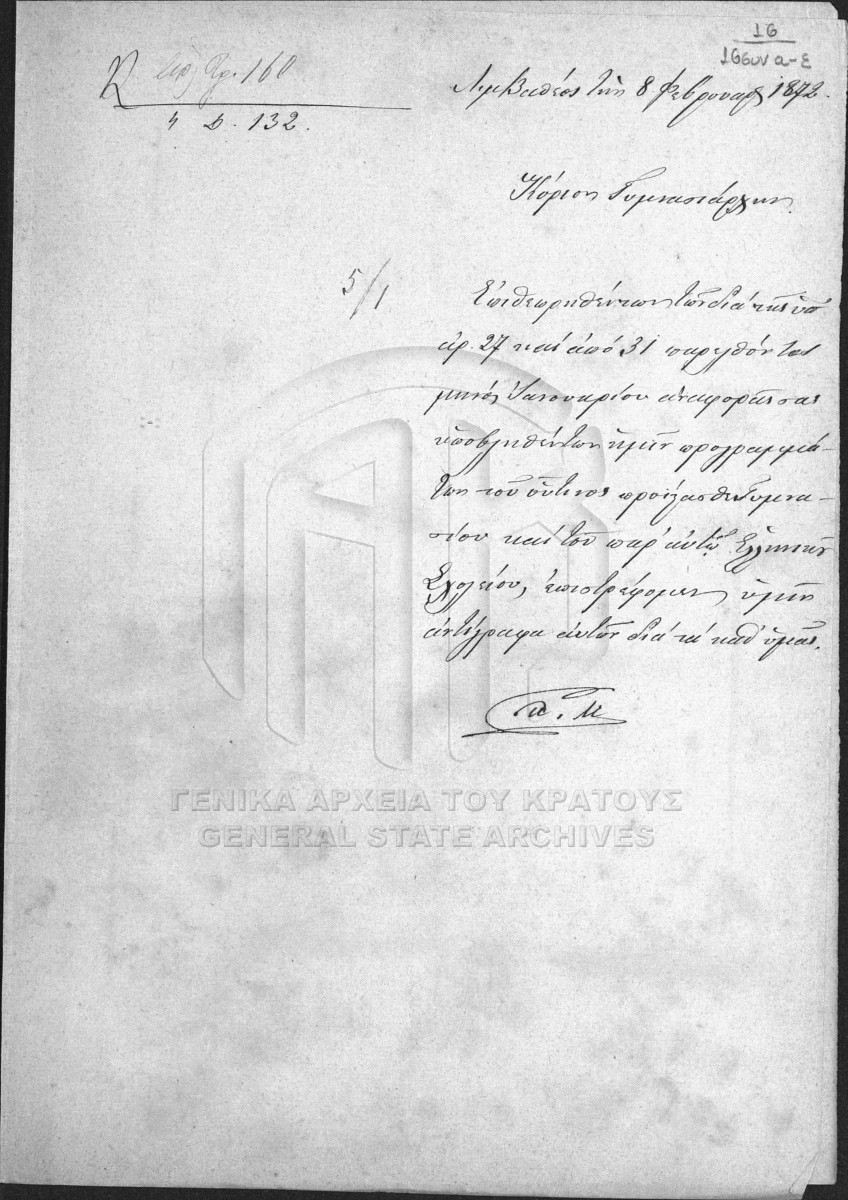 16
16συν α-ε
ἀρ. Πρ. 160
Δ. 132.
Λιμ. Βαθέος τὴν 8 Φεβρουαρ. 1872.
Κύριον Γυμνασιάρχην.
5/1
Ἐπιθεωρηθέντων τῶν διὰ τῆς ὑπ
ἀρ. 27 καὶ ἀπὸ 31 παρελθόντος
μηνὸς Ἰανουαρίου ἀναφορᾶς σας
ὑποβληθέντων ἡμῖν προγραμμά-
των τοῦ οὗτινος προΐστασθε Γυμνα-
σίου καὶ τοῦ παρ' αὐτῷ Ἑλληνικοῦ
Σχολείου, ἐπιστρέφομεν ὑμῖν
ἀντίγραφα αὐτῶν διὰ τὰ καθ' ὑμᾶς.
ΓΕΝΙΚΑ ΑΡΧΕΙΑ ΤΟΥ ΚΡΑΤΟΥΣ
GENERAL STATE ARCHIVES